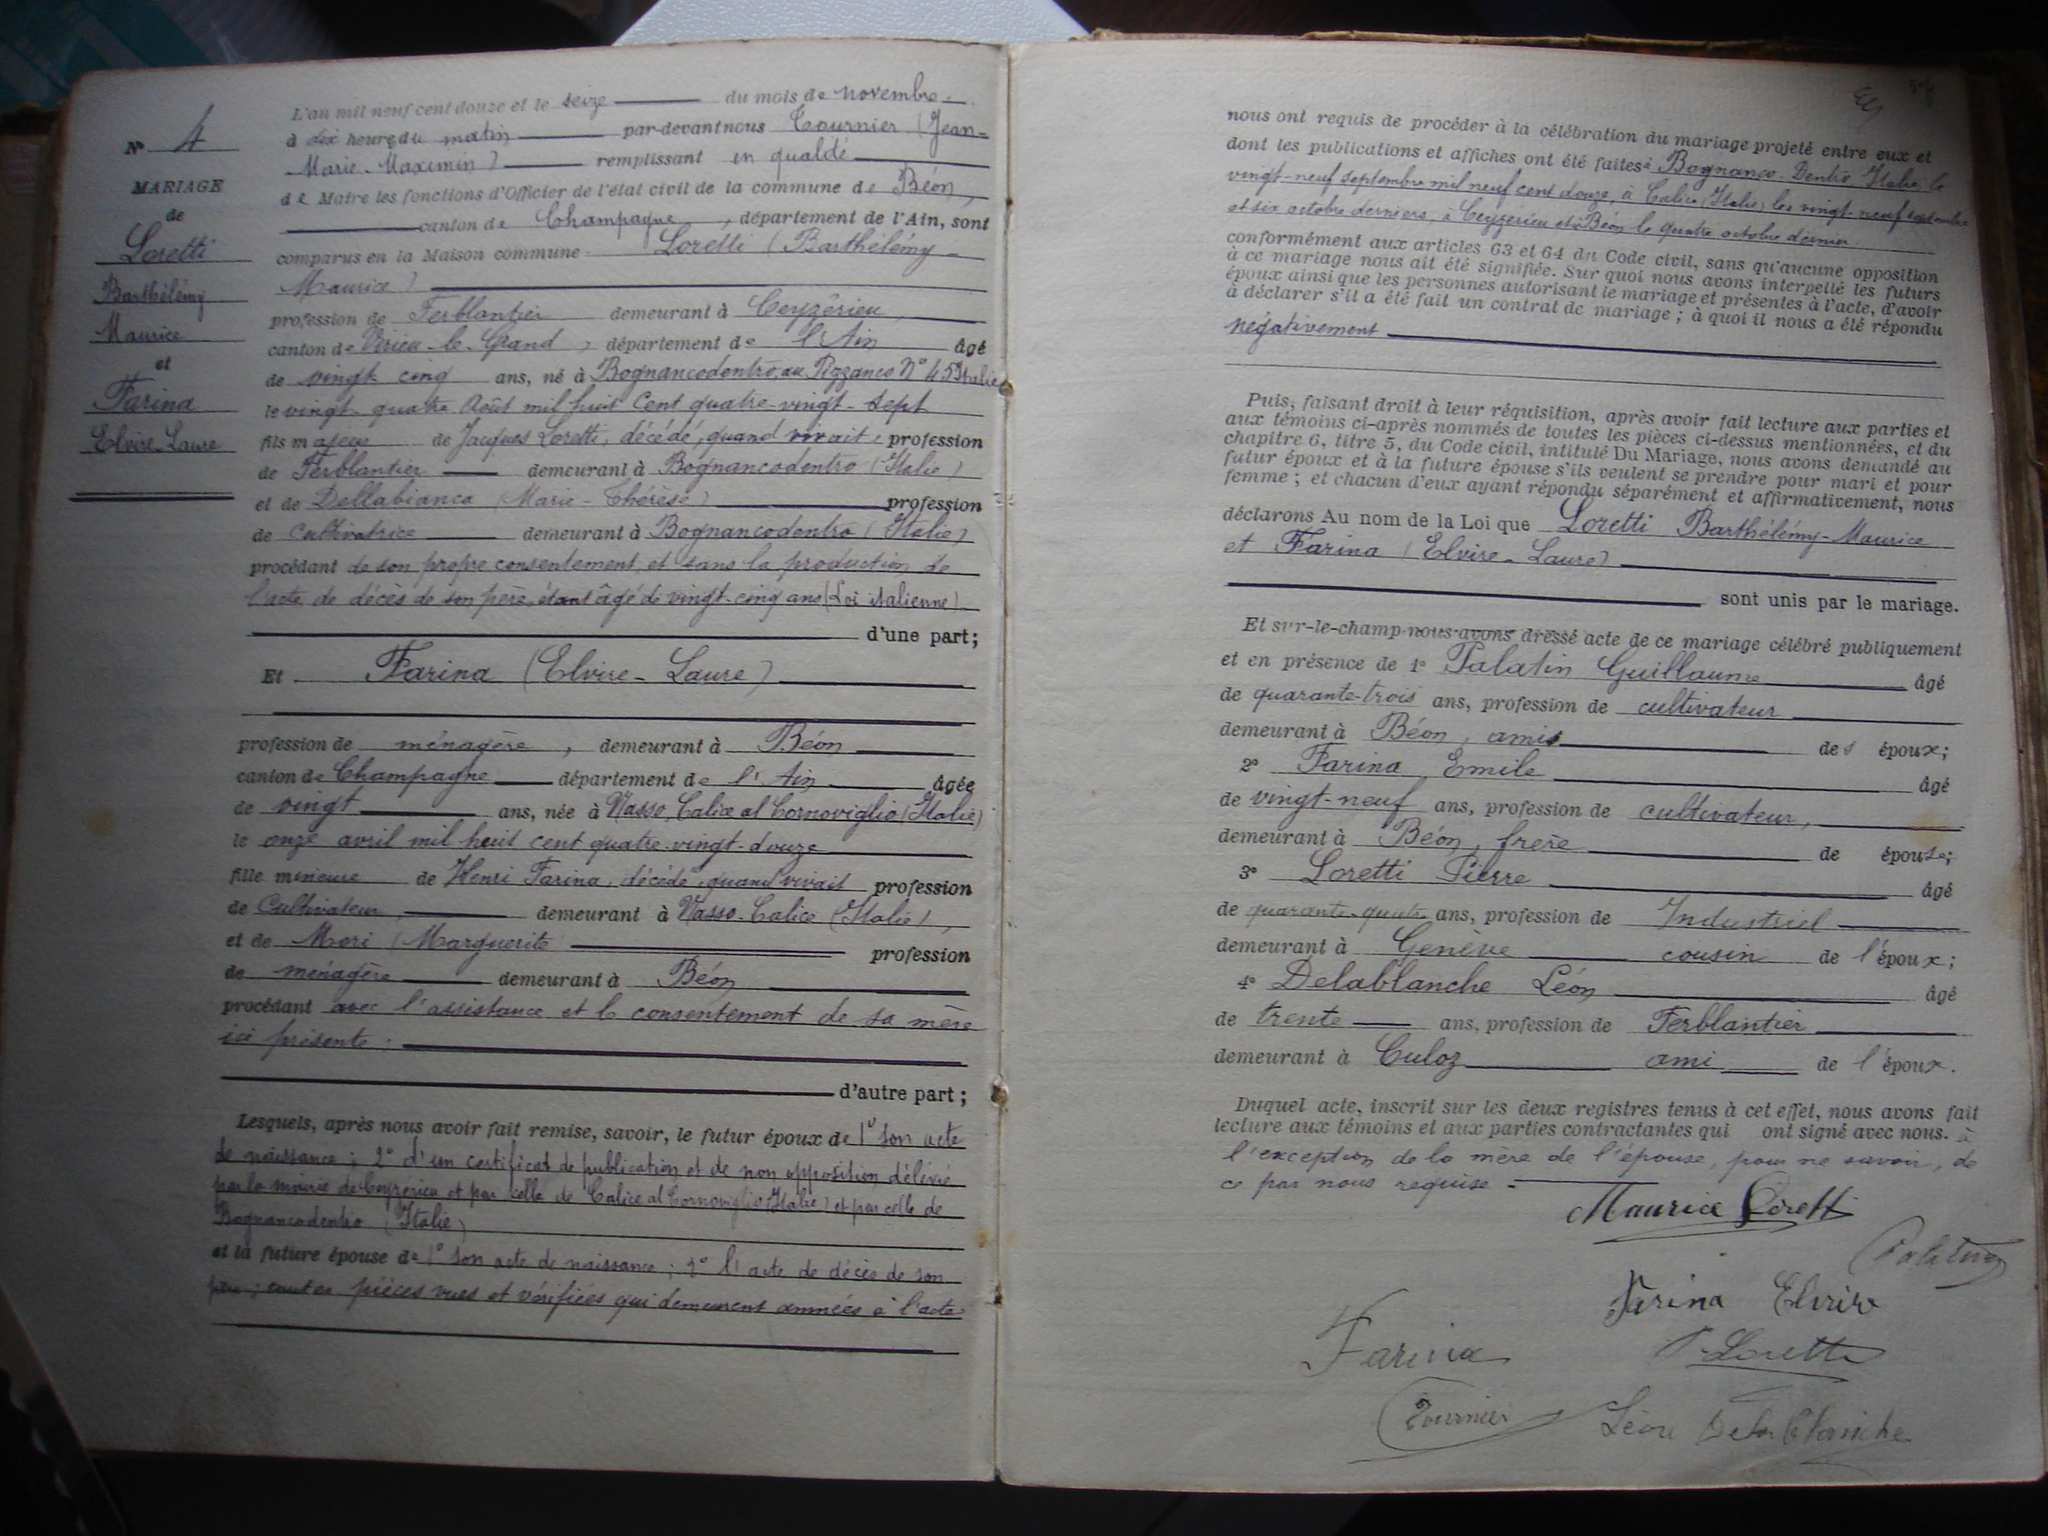 N° 4
MARIAGE
de
Loretti
Barthélémy
Maurice
et
Farina
Elvire-Laure
L'an mil neuf cent douze et le seize du mois de novembre
à dix heures du matin par-devant nous Tournier (Jean-
Marie-Maximin) remplissant en qualité
de Maire les fonctions d'Officier de l'état civil de la commune de Béon,
canton de Champagne, département de l'Ain, sont
comparus en la Maison commune Loretti (Barthélémy-
Maurice)
profession de Ferblantier demeurant à Ceyzérieu,
canton de Virieu-le-Grand, département de l'Ain âgé
de vingt cinq ans, né à Bognancodentro, au Pizzanco N° 45 Italie
le vingt-quatre Août mil huit cent quatre-vingt-sept
fils majeur de Jacques Loretti, décédé, quand vivait, profession
de Ferblantier demeurant à Bognancodentro (Italie)
et de Dellabianca (Marie-Thérèse) profession
de cultivatrice demeurant à Bognancodentro (Italie)
procédant de son propre consentement et sans la production de
l'acte de décès de son père, étant âgé de vingt-cinq ans (Loi italienne)
d'une part;
Et Farina (Elvire-Laure)
profession de ménagère, demeurant à Béon
canton de Champagne département de l'Ain âgée
de vingt ans, née à Nasso, Calice al Cornoviglio (Italie)
le onze avril mil huit cent quatre-vingt-douze
fille mineure de Henri Farina, décédé, quand vivait profession
de Cultivateur, demeurant à Nasso-Calice (Italie),
et de Mori (Marguerite profession
de ménagère demeurant à Béon
procédant avec l'assistance et le consentement de sa mère
ici présente.
d'autre part;
Lesquels, après nous avoir fait remise, savoir, le futur époux de 1° son acte
de naissance; 2° d'un certificat de publication et de non opposition délivré
par la mairie de Ceyzérieu et par celle de Calice al Cornoviglio (Italie) et par celle de
Bognancodentro (Italie)
et la future épouse de 1° son acte de naissance; 2° l'acte de décès de son
père; toutes pièces vues et vérifiées qui demeurent annexées à l'acte
nous ont requis de procéder à la célébration du mariage projeté entre eux et
dont les publications et affiches ont été faites à Bognanco-Dentro, Italie, le
vingt-neuf septembre mil neuf cent douze, à Calice (Italie) les vingt-neuf septembre
et six octobre derniers, à Ceyzérieu et à Béon le quatre octobre dernier
conformément aux articles 63 et 64 du Code civil, sans qu'aucune opposition
à ce mariage nous ait été signifiée. Sur quoi nous avons interpellé les futurs
époux ainsi que les personnes autorisant le mariage et présentes à l'acte, d'avoir
à déclarer s'il a été fait un contrat de mariage; à quoi il nous a été répondu
négativement
Puis, faisant droit à leur réquisition, après avoir fait lecture aux parties et
aux témoins ci-après nommés de toutes les pièces ci-dessus mentionnées, et du
chapitre 6, titre 5, du Code civil, intitulé Du Mariage, nous avons demandé au
futur époux et à la future épouse s'ils veulent se prendre pour mari et pour
femme; et chacun d'eux ayant répondu séparément et affirmativement, nous
déclarons Au nom de la Loi que Loretti Barthélémy-Maurice
et Farina (Elvire-Laure)
sont unis par le mariage.
Et sur-le-champ nous avons dressé acte de ce mariage célébré publiquement
et en présence de 1° Palatin Guillaume âgé
de quarante-trois ans, profession de cultivateur
demeurant à Béon, amis des époux;
2° Farina Emile âgé
de vingt-neuf ans, profession de cultivateur,
demeurant à Béon, frère de épouse;
3° Loretti Pierre âgé
de quarante-quatre ans, profession de Industriel
demeurant à Genève cousin de l'époux;
4° Delablanche Léon âgé
de trente ans, profession de Ferblantier
demeurant à Culoz ami de l'époux.
Duquel acte, inscrit sur les deux registres tenus à cet effet, nous avons fait
lecture aux témoins et aux parties contractantes qui ont signé avec nous. à
l'exception de la mère de l'épouse, pour ne savoir, de
ce par nous requise
Maurice Loretti
Palatin
Farina Elvire
Farina
P. Loretti
Tournier
Léon Delablanche